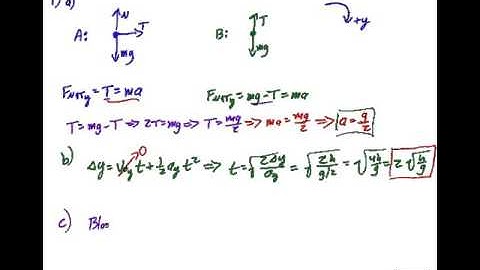 1) a)
N
T
A:
mg
T
B:
mg
+y
F_NETy = T = ma
F_NETy = mg - T = ma
T = mg - T ⇒ 2T = mg ⇒ T = mg/2 ⇒ ma = mg/2 ⇒ a = g/2
b) Δy = v_0y t + 1/2 a_y t² ⇒ t = √(2Δy/a_y) = √(2h/(g/2)) = √(4h/g) = 2√(h/g)
0
c) Bloc